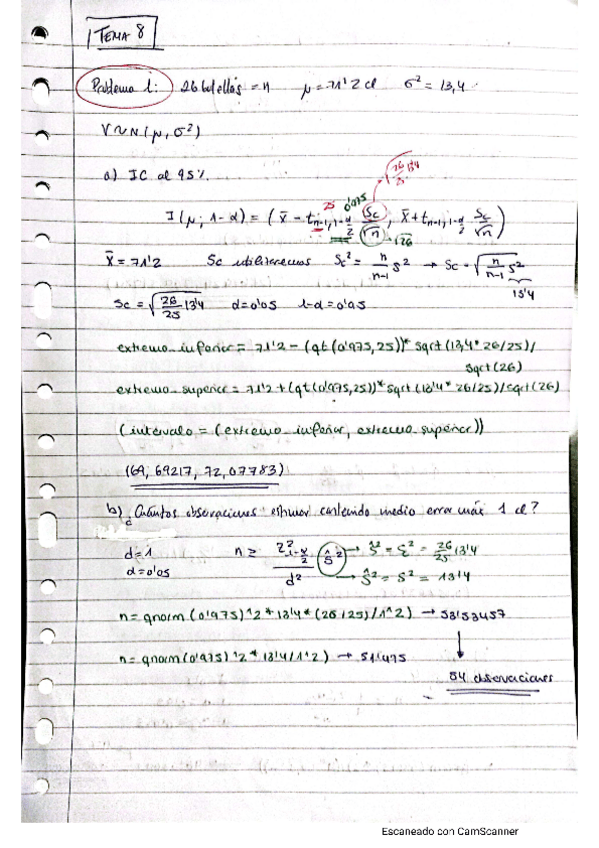 TEMA 8
Problema 1: 26 botellas = n μ = 71'2 cl σ² = 13,4
V ~ N(μ, σ²)
a) IC al 95%.
√(26/25 13'4)
25 0'975
I(μ; 1-α) = (x̄ - t n-1, 1-α/2 Sc/√n ; x̄ + t n-1, 1-α/2 Sc/√n)
√26
x̄ = 71'2 Sc utilizaremos Sc² = n/n-1 S² → Sc = √(n/n-1 S²)
13'4
Sc = √(26/25 13'4) α = 0'05 1-α = 0'95
extremo_inferior = 71'2 - (qt(0'975,25))* sqrt(13,4* 26/25)/
sqrt(26)
extremo_superior = 71'2 + (qt(0'975,25))* sqrt(13'4* 26/25)/sqrt(26)
(intervalo = (extremo_inferior, extremo_superior))
(69,69217, 72,07783)
b) ¿Cuántas observaciones estimar contenido medio error máx 1 cl?
d = 1 n ≥ Z²1-α/2 Ŝ² / d² → Ŝ² = Sc² = 26/25 13'4
α = 0'05 → Ŝ² = S² = 13'4
n = qnorm(0'975)^2 * 13'4 * (26/25)/1^2) → 53'53457
n = qnorm(0'975)^2 * 13'4/1^2) → 51'475
54 observaciones
Escaneado con CamScanner